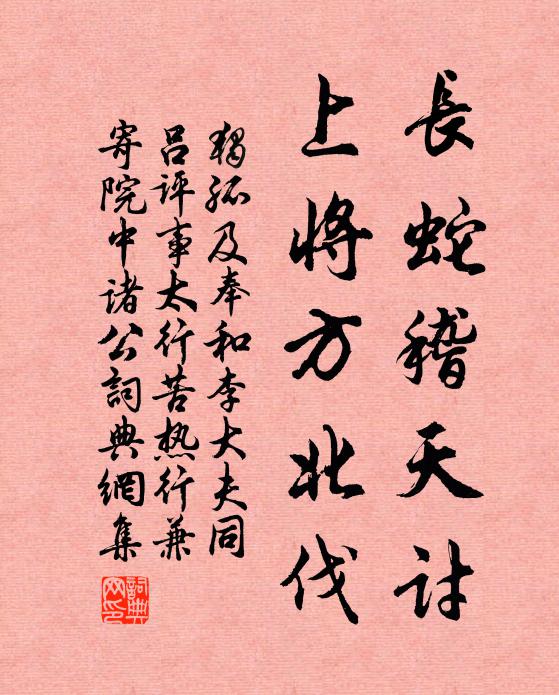 長蛇稽天討
上將方北伐
獨孤及奉和李大夫同
呂評事太行苦热行兼
寄院中諸公詞典網集
詞典
网印